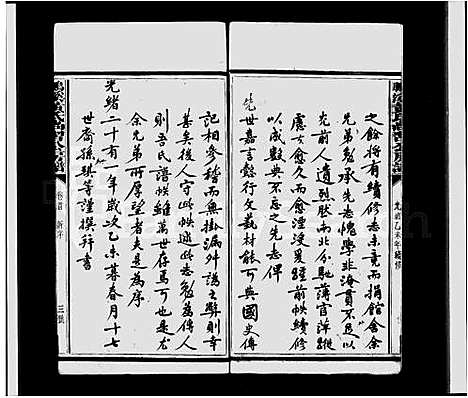 之餘將有續修志未竟而捐館舍余
兄弟勉承先志愧學非海貫不足以
光前人遺烈然而北分馳薄宦萍蹤
慮女愈久而愈湮沒爰踵前帙續修
以成鉅典不忘之先志俾
先世嘉言懿行文藝材能可與國史傳
記相參稽而無掛漏舛譌之弊則幸
甚矣後人守此帙述此志勉為傳人
則吾氏譜帙維萬世存焉可也是尤
余兄弟所厚望者夫是為序
光緒二十有一年歲次乙未暮春月十七
世裔孫
等謹撰行書
光緒乙未年續修
卷首 新序
三